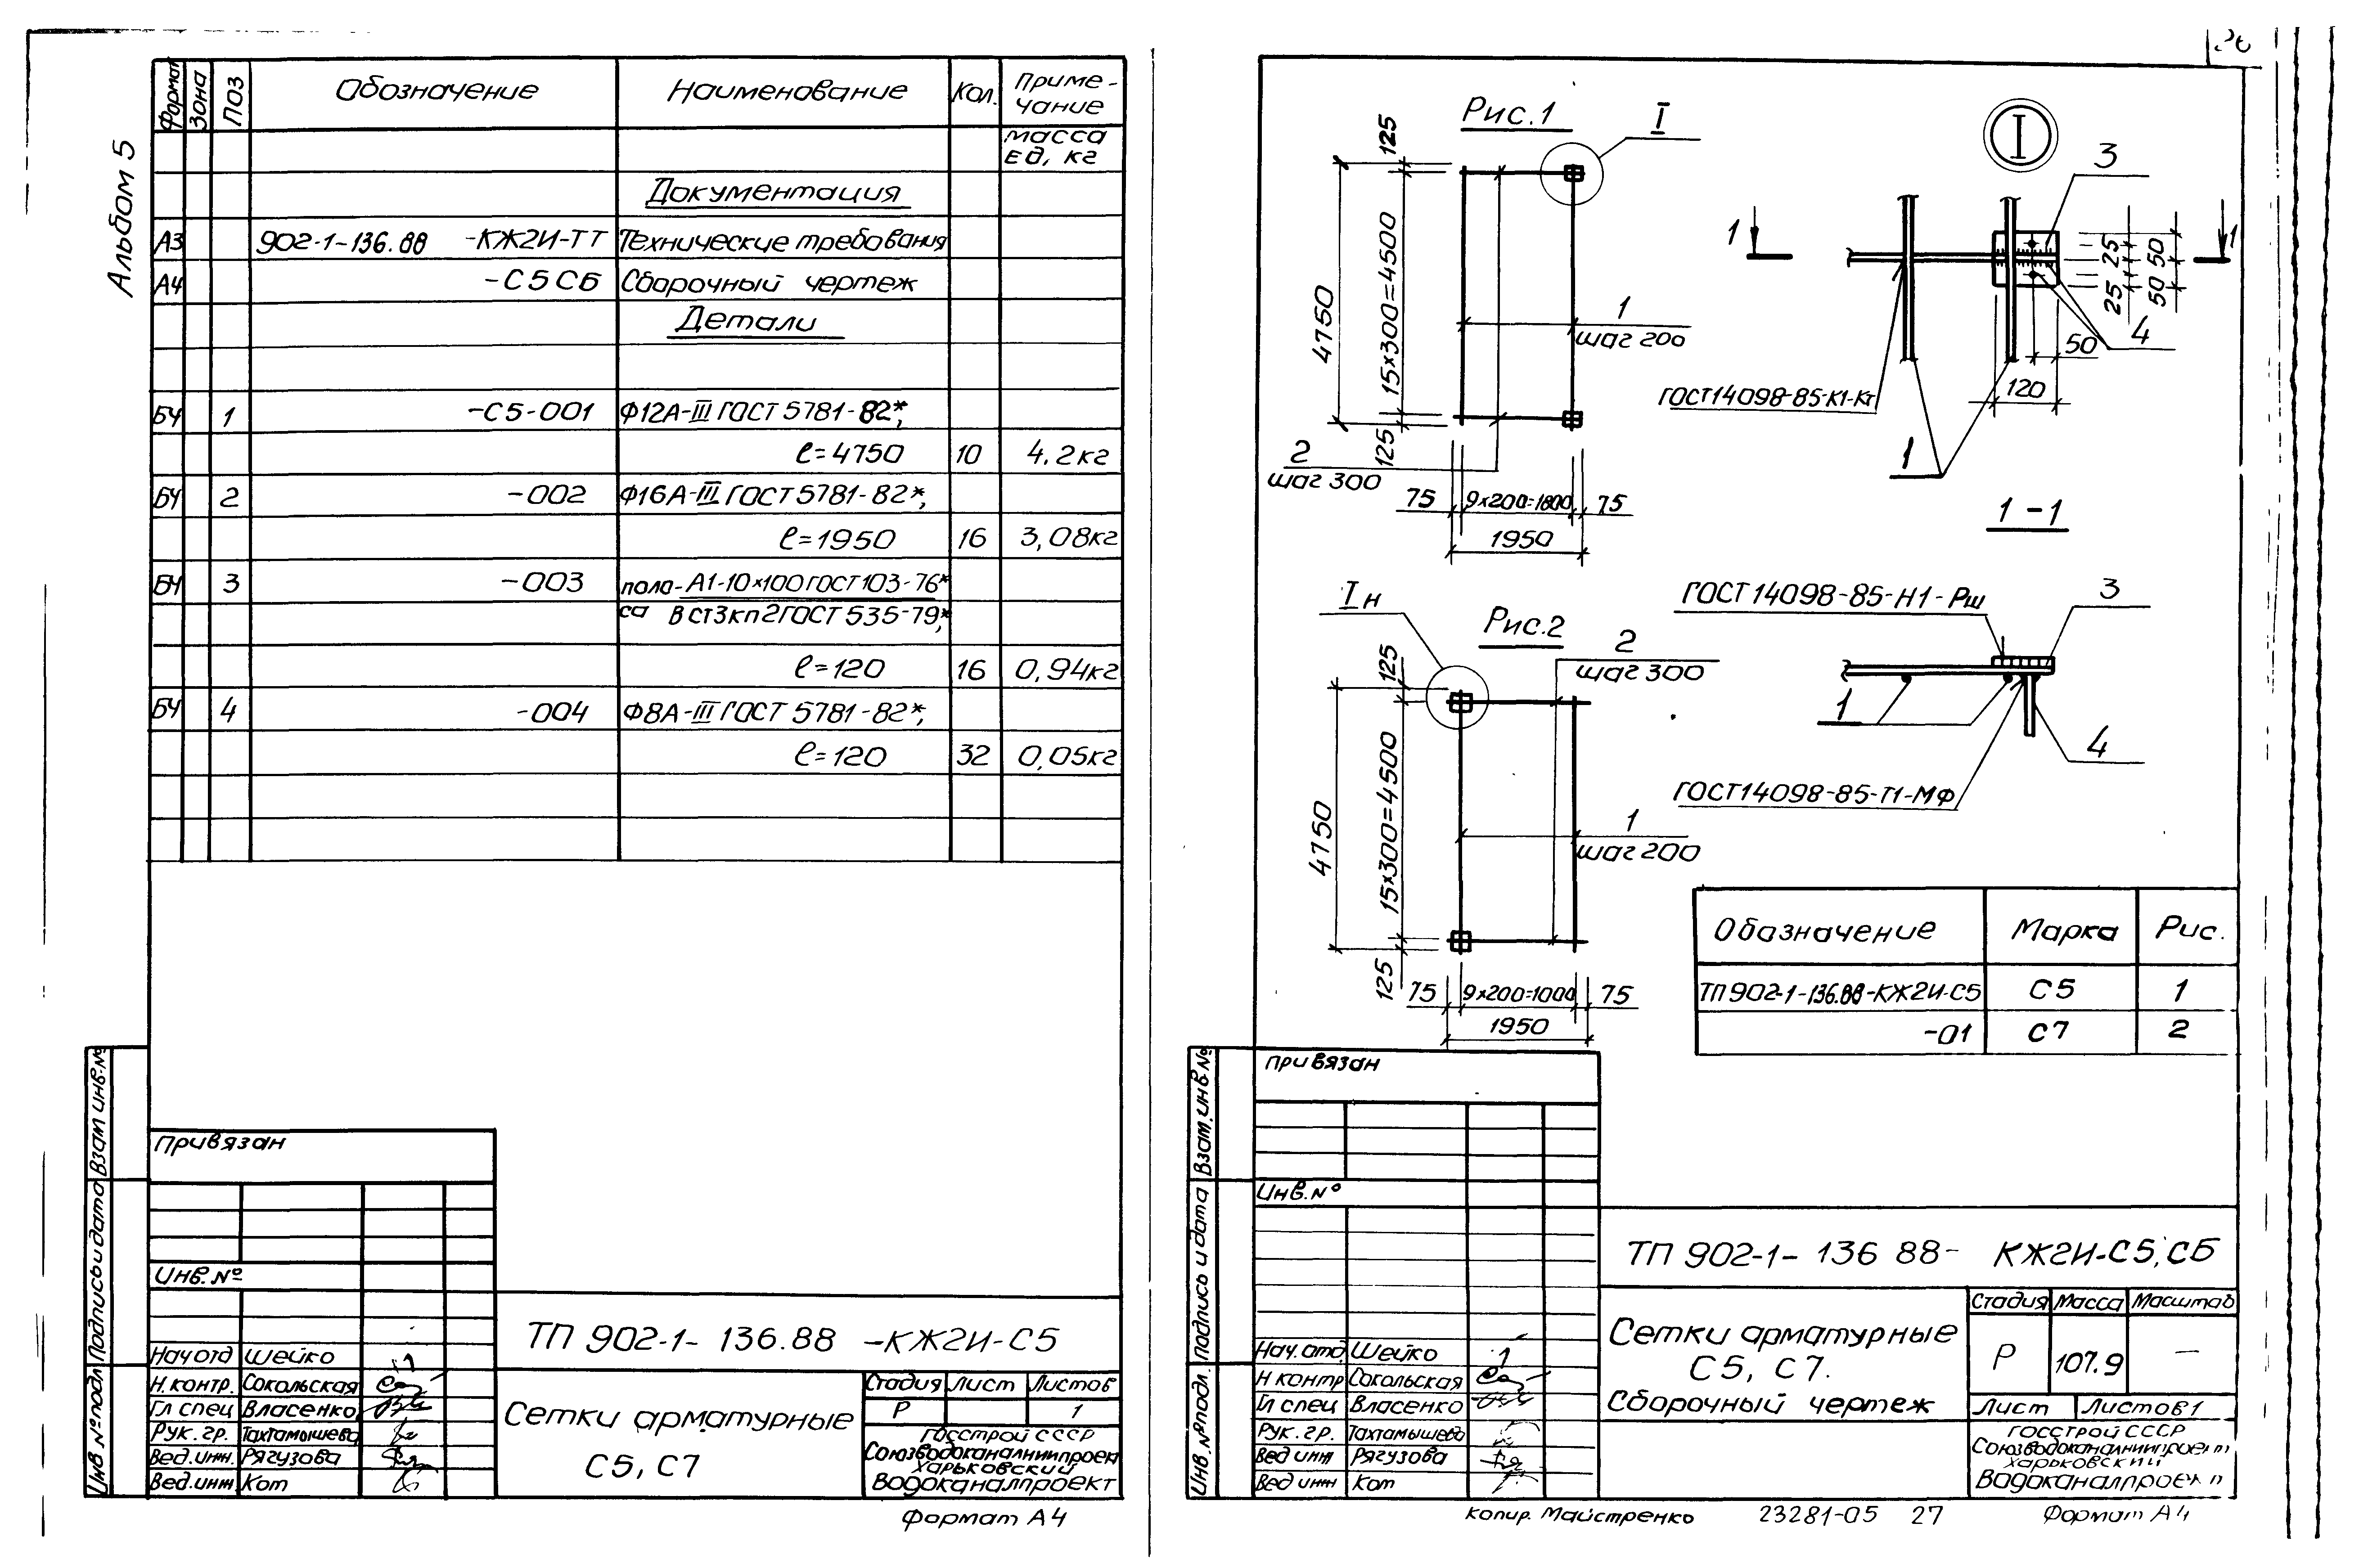 Альбом 5
Формат Зона Поз Обозначение Наименование Кол. Приме-
чание
масса
ед, кг
Документация
А3 902-1-136.88 -КЖ2И-ТТ Технические требования
А4 -С5СБ Сборочный чертеж
Детали
БЧ 1 -С5-001 Ф12А-III ГОСТ 5781-82*,
ℓ=4750 10 4.2кг
БЧ 2 -002 Ф16А-III ГОСТ 5781-82*,
ℓ=1950 16 3,08кг
БЧ 3 -003 поло- А1-10×100 ГОСТ 103-76*
са В ст3кп2 ГОСТ 535-79*,
ℓ=120 16 0,94кг
БЧ 4 -004 Ф8А-III ГОСТ 5781-82*,
ℓ=120 32 0,05кг
Взам инв.№
Подпись и дата
Инв № подл
Привязан
Инв.№
Нач отд Шейко
Н.контр. Сокольская
Гл спец Власенко
Рук. гр. Тахтамышева
Вед.инж. Рягузова
Вед.инж Кот
ТП 902-1- 136.88 -КЖ2И-С5
Сетки арматурные
С5, С7
Стадия Лист Листов
Р 1
Госстрой СССР
Союзводоканалниипроект
Харьковский
Водоканалпроект
Формат А4
Рис.1
I
125
15×300=4500
4750
125
1
шаг 200
2
шаг 300
75 9×200=1800 75
1950
I
3
1 1
25 50
25 50
4
50
120
ГОСТ14098-85-К1-Кт
1
1-1
ГОСТ 14098-85-Н1-Рш 3
1
4
ГОСТ14098-85-Т1-МФ
Iн
Рис.2
2
шаг 300
125
15×300=4500
4750
125
1
шаг 200
75 9×200=1000 75
1950
Обозначение Марка Рис.
ТП 902-1-136.88-КЖ2И-С5 С5 1
-01 С7 2
Взам.инв№
Подпись и дата
Инв.№подл.
привязан
Инв.№
Нач.отд Шейко
Н контр Сокольская
Гл спец Власенко
Рук. гр. Тахтамышева
Вед инж Рягузова
Вед инж Кот
ТП 902-1- 136 88- КЖ2И-С5,СБ
Сетки арматурные
С5, С7.
Сборочный чертеж
Стадия Масса Масштаб
Р 107.9 —
Лист Листов 1
Госстрой СССР
Союзводоканалниипроект
Харьковский
Водоканалпроект
копир. Майстренко 23281-05 27 Формат А4